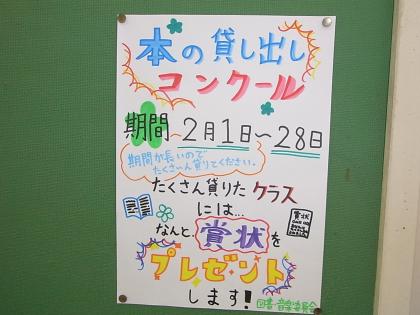 本の貸し出し
コンクール
期間 2月1日～28日
期間が長いので
たくさん貸りてください。
たくさん貸りたクラス
には…
なんと、賞状を
プレゼント
します!
賞状
図書・音楽委員会